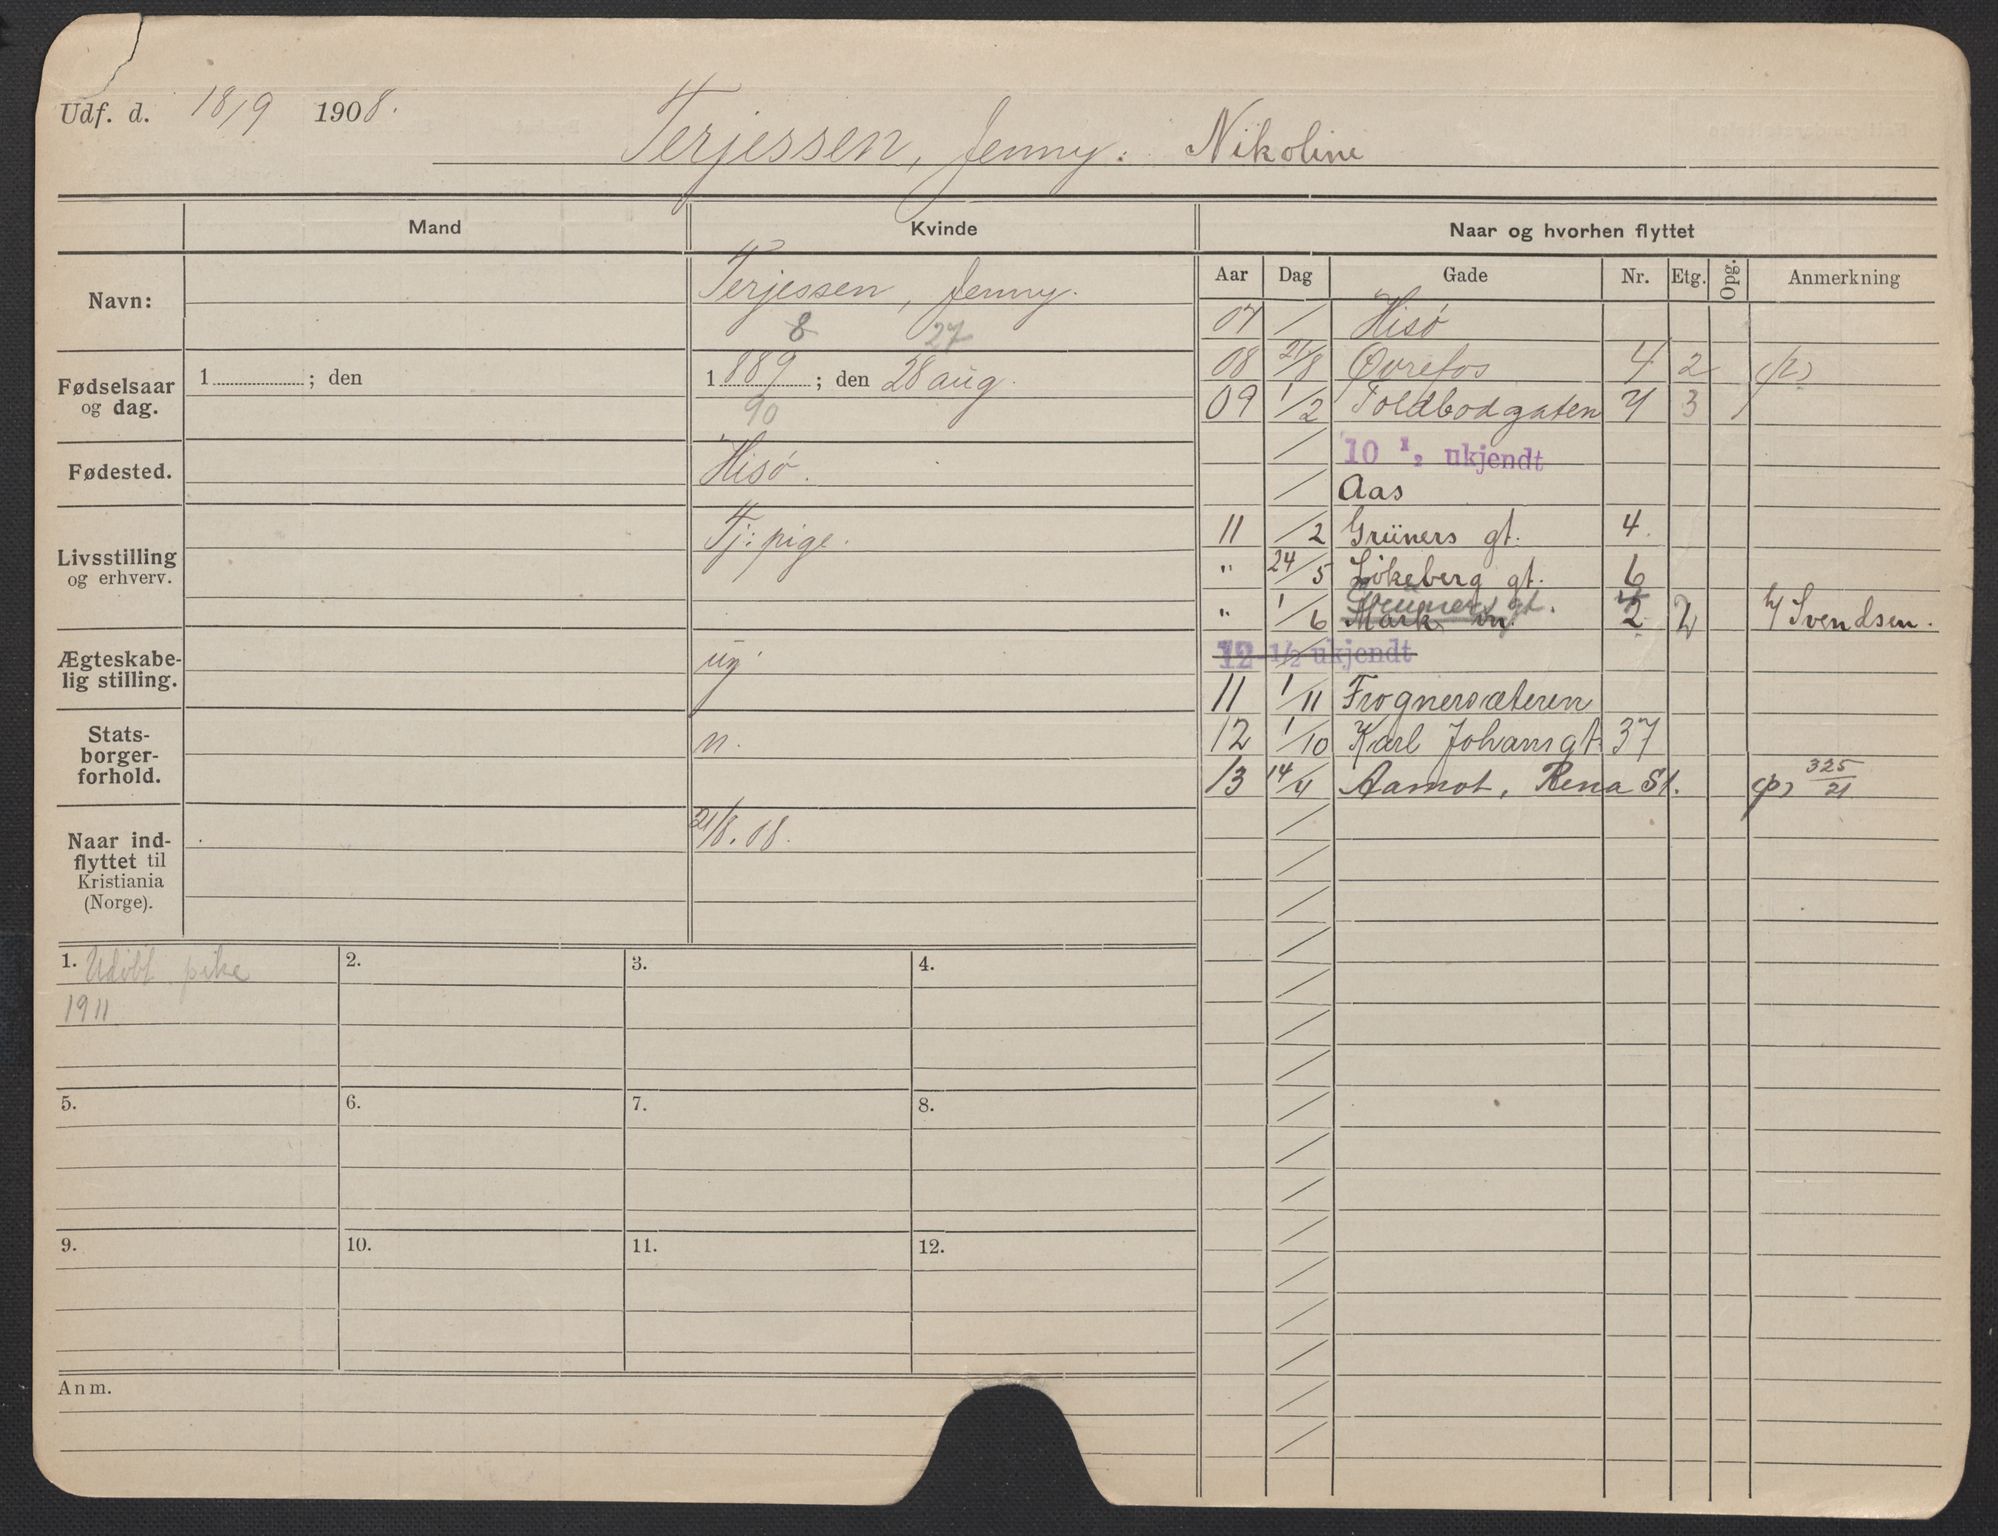 Udf. d. 18/9 1908.
Terjessen, Jenny. Nikoline
Mand Kvinde Naar og hvorhen flyttet
Aar Dag Gade Nr. Etg. Opg. Anmerkning
Navn: Terjessen, Jenny.
8 27
Fødselsaar og dag. 1 ; den 1889 ; den 28 aug.
90
Fødested. Hisø.
Livsstilling og erhverv. Tj: pige.
Ægteskabe-
lig stilling. ug.
Stats-
borger-
forhold. n.
Naar ind-
flyttet til
Kristiania
(Norge). 21/8.08.
07 / Hisø
08 21/8 Øvrefos 4 2 (p)
09 1/2 Toldbodgaten 7 3 /
/ 10 1/2 ukjendt
/ Aas
11 /2 Grüners gt. 4.
" 24/5 Løkeberg gt. 6
Grüners gt. 4
" 1/6 Mark vn 2 2 h/ Svendsen.
12 1/2 ukjendt
11 1/11 Frognersæteren
12 1/10 Karl Johansgt. 37
13 14/4 Aamot, Rena St. (p) 325/21
1. Udøbt pike
1911
2.
3.
4.
5.
6.
7.
8.
9.
10.
11.
12.
Anm.